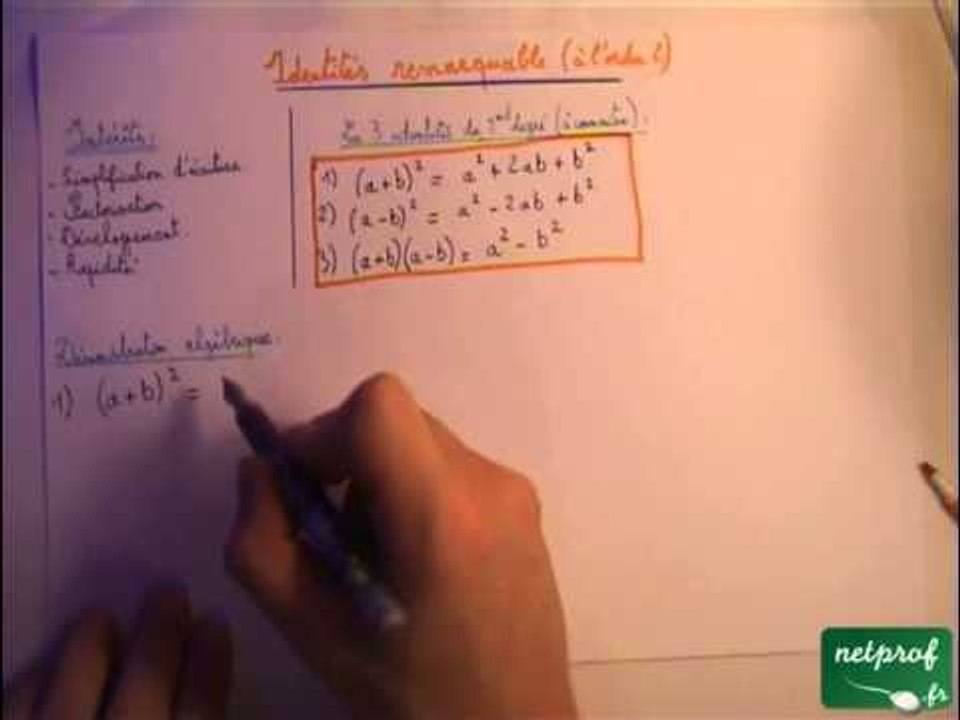 Identités remarquable (à l'ordre 2)
Intérêts:
- Simplification d'écriture
- Factorisation
- Développement
- Rapidité
Les 3 identités du 2nd degré (à connaître):
1) (a+b)² = a² + 2ab + b²
2) (a-b)² = a² - 2ab + b²
3) (a+b)(a-b) = a² - b²
Démonstration algébrique:
1) (a+b)² =
netprof
.fr